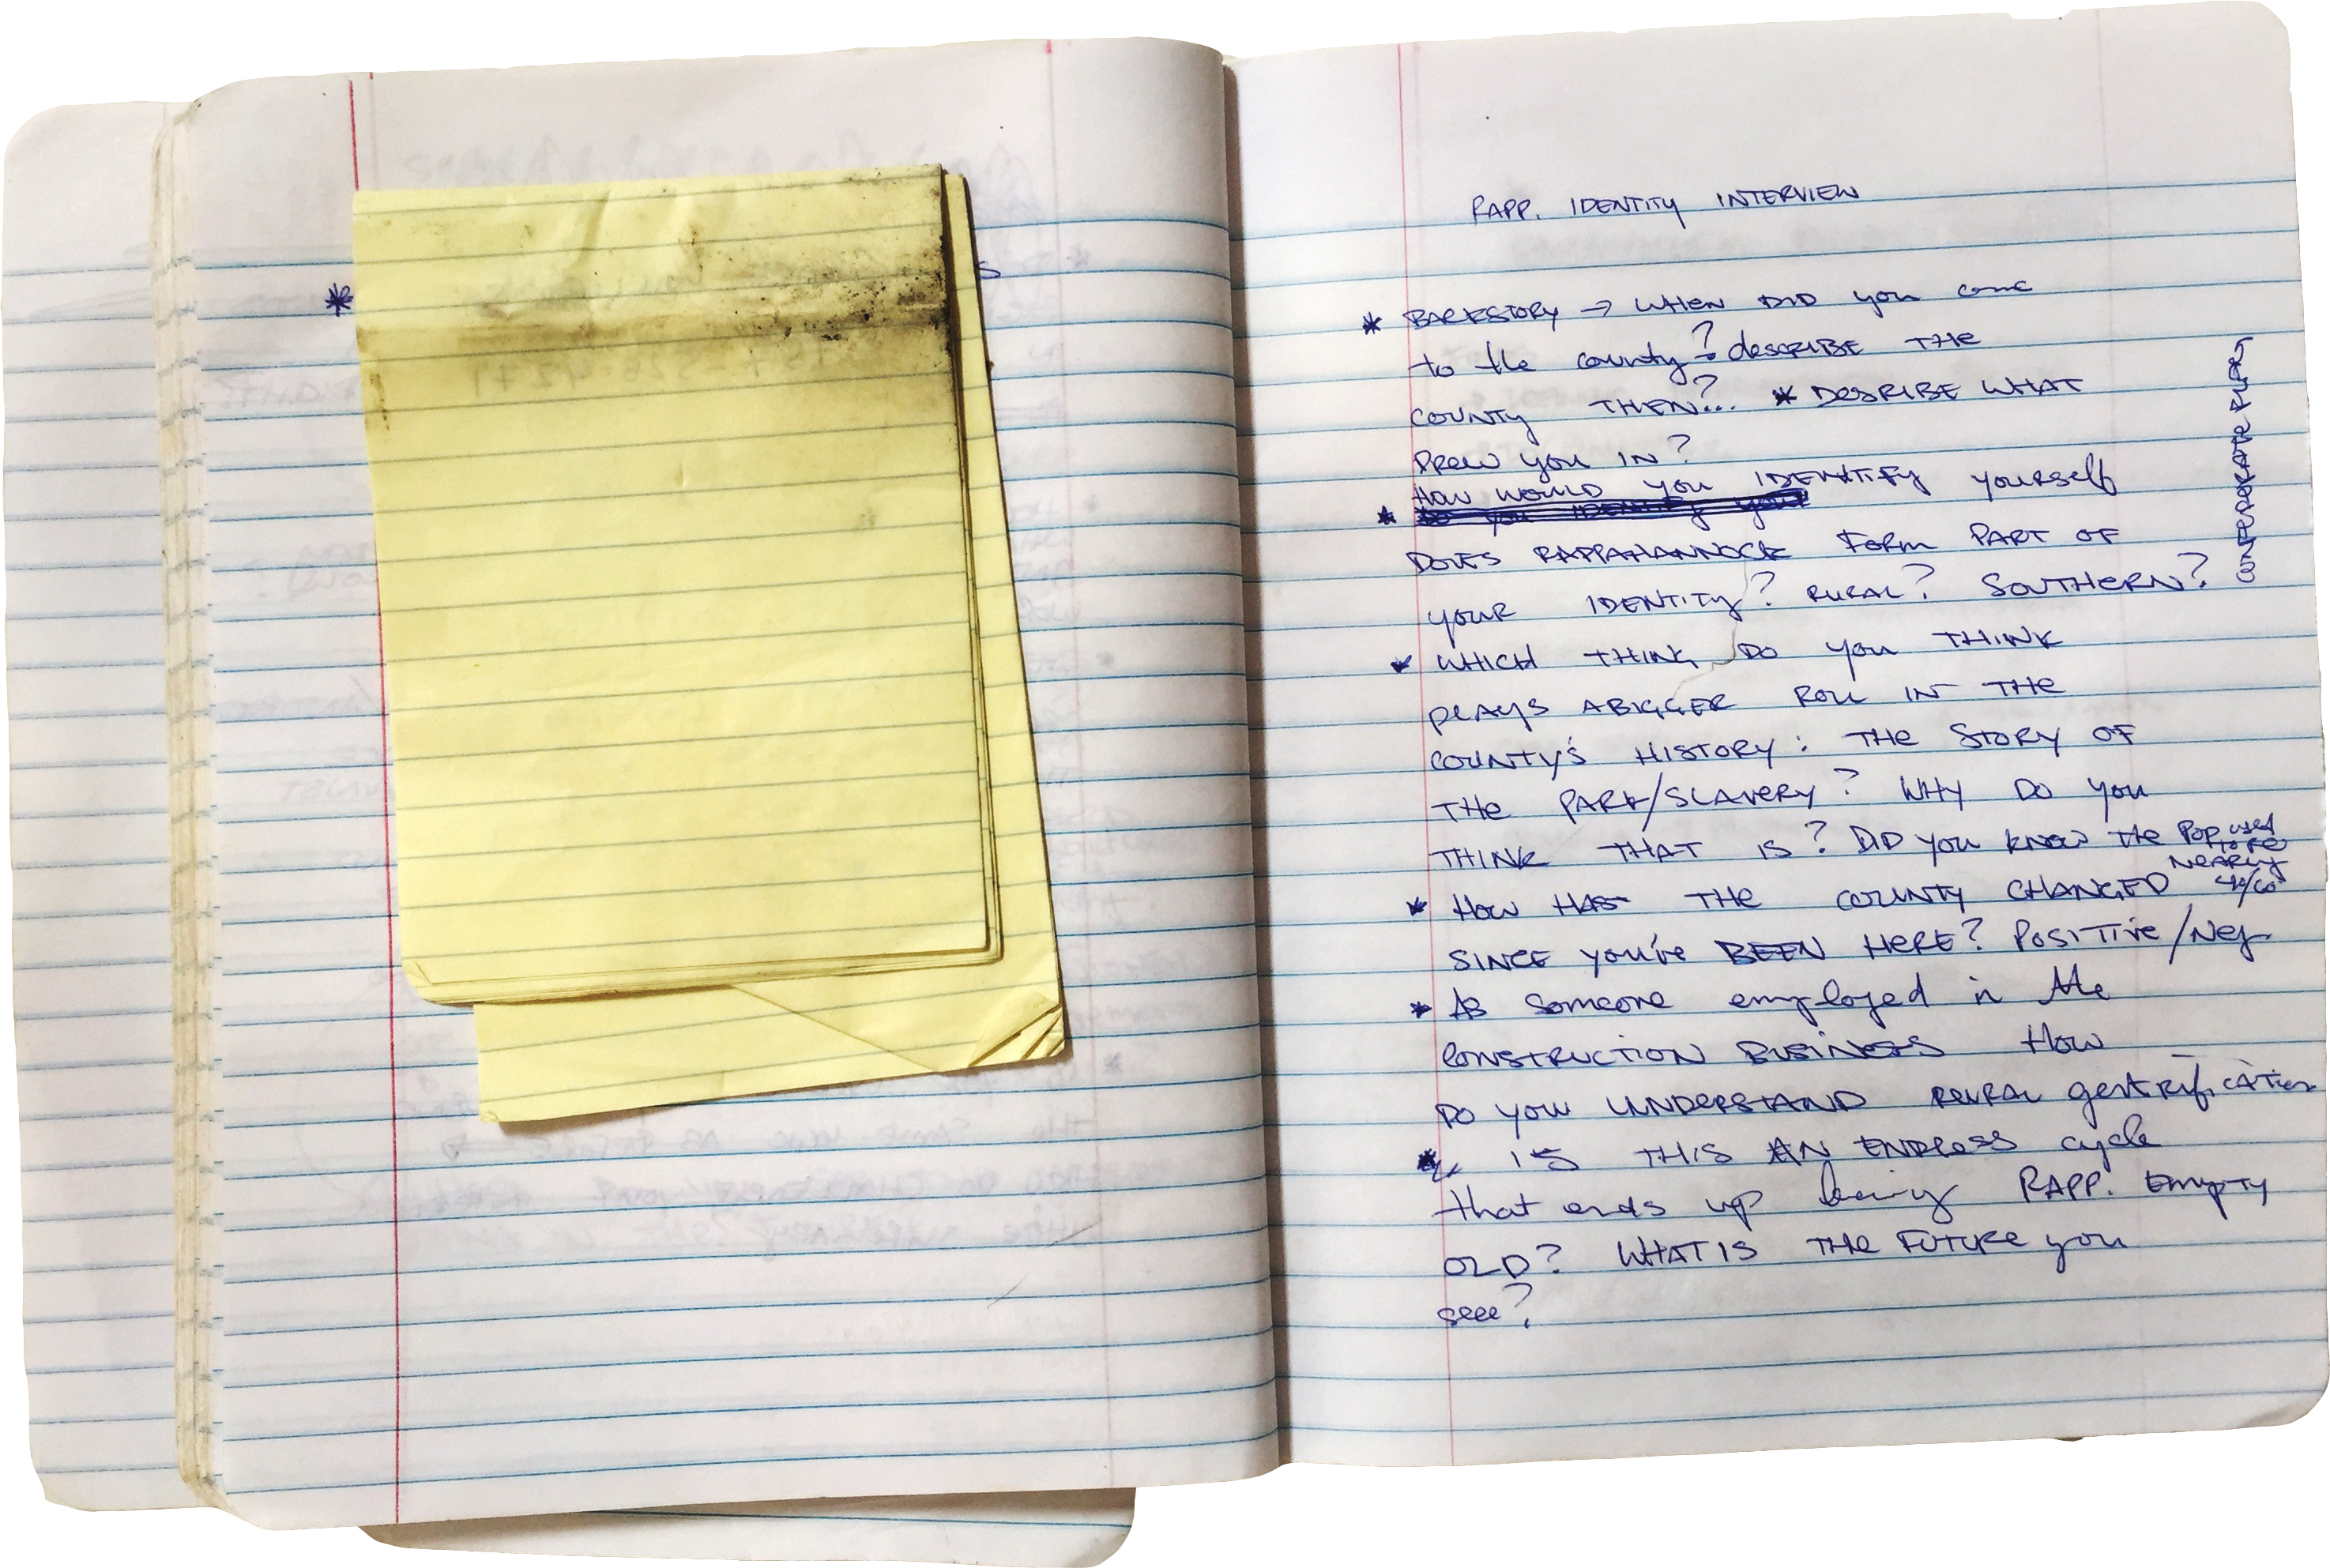 *
S
RAPP. IDENTITY INTERVIEW
* BACKSTORY → WHEN DID you come
to the county? describe THE
COUNTY THEN?.. * DESRIBE WHAT
DREW you IN?
How would you IDENTIFY yourself
* Do you IDENTIFY your
DOES RAPPAHANNOCK FORM PART OF
YOUR IDENTITY? RURAL? SOUTHERN?
* WHICH THING DO you THINK
PLAYS A BIGGER ROLL IN THE
COUNTY'S HISTORY: THE STORY OF
THE PARK/SLAVERY? WHY DO you
THINK THAT IS? DID you know the POP used
to be
NEARLY
* How HAS THE COUNTY CHANGED
SINCE you've BEEN HERE? POSITIVE/Neg.
* AS someone employed in the
CONSTRUCTION BUSINESS How
DO YOU UNDERSTAND RURAL gentrification
* IS THIS AN ENDLESS cycle
that ends up being RAPP. EMPTY
OLD? WHAT IS THE FUTURE you
see?
CONFEDERATE FURY